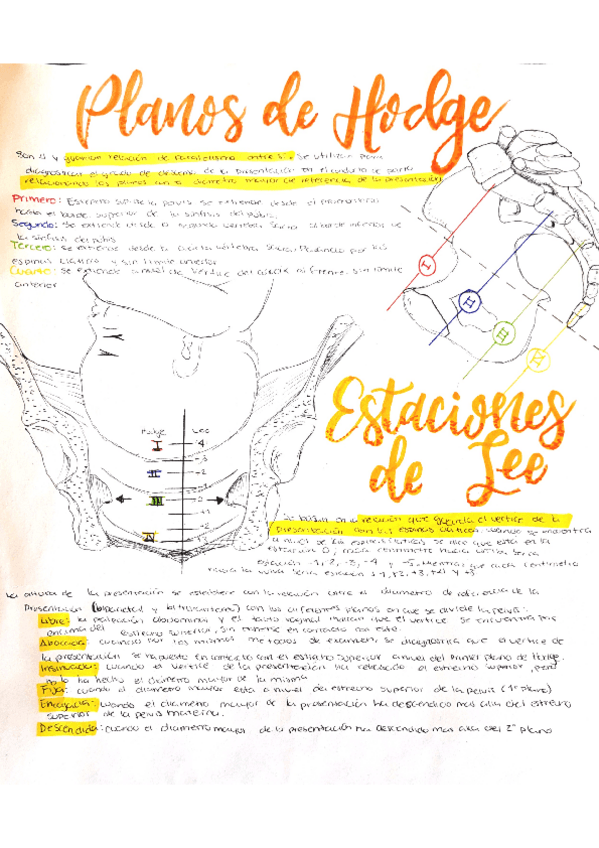 Planos de Hodge
Son 4 y guardan relación de paralelismo entre sí. Se utilizan para
diagnosticar el grado de descenso de la presentación en el conducto de parto
relacionando los planos con el diametro mayor de referencia de la presentación
Primero: Estrecho sup. de la pelvis se extiende desde el promontorio
hasta el borde superior de la sinfisis del pubis.
Segundo: Se extiende desde la segunda vertebra sacra al borde inferior de
la sinfisis del pubis
Tercero: se extiende desde la vertebra sacra, pasando por las
espinas ciaticas y sin limite anterior
Cuarto: Se extiende a nivel del vertice del coxis al frente, sin limite
anterior
I
II
III
IV
Hodge Lee
I -4
-3
II -2
III
+1
IV
Estaciones
de Lee
Se basan en la relación que guarda el vertice de la
presentación con las espinas ciaticas, cuando se encuentra
a nivel de las espinas ciaticas se dice que esta en la
estación 0, cada centimetro hacia arriba sera
estación -1, -2, -3, -4 y -5, mientras que cada centimetro
hacia la vulva seria estación +1, +2, +3, +4 y +5
La altura de la presentación se establece con la relación entre el diametro de referencia de la
presentación (biparietal y bitrocantereo) con los diferentes planos en que se divide la pelvis:
Libre: la palpación abdominal y el tacto vaginal indican que el vertice se encuentra por
encima del estrecho superior, sin ponerse en contacto con este.
Abocada: cuando por los mismos metodos de examen, se diagnostica que el vertice de
la presentación se ha puesto en contacto con el estrecho superior a nivel del Primer plano de Hodge.
Insinuada: cuando el vertice de la presentación ha rebasado el estrecho superior, pero
no lo ha hecho el diametro mayor de la misma
Fija: cuando el diametro mayor esta a nivel del estrecho superior de la pelvis (1º plano)
Encajada: cuando el diametro mayor de la presentación ha descendido mas alla del estrecho
superior de la pelvis materna.
Descendida: cuando el diametro mayor de la presentación ha descendido mas alla del 2º plano